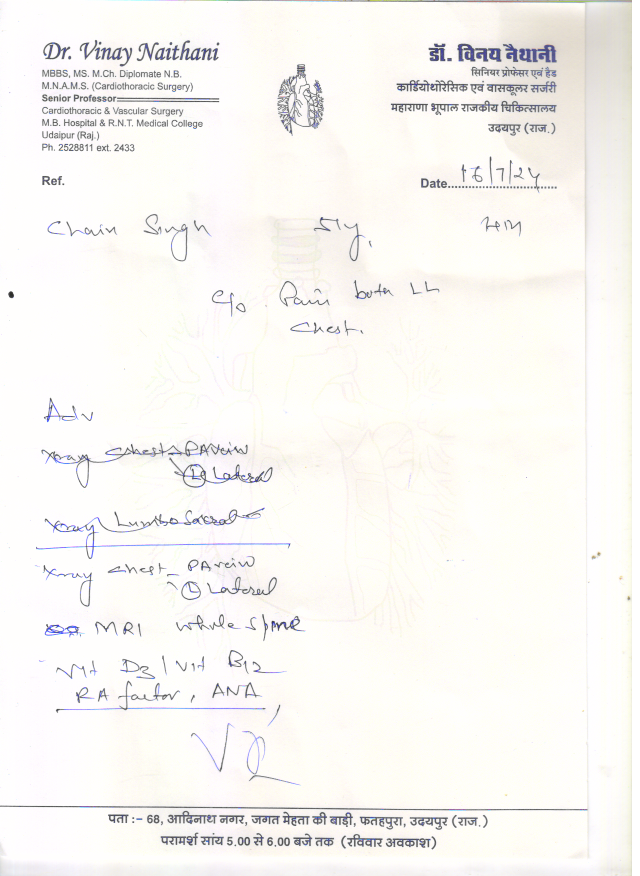 Dr. Vinay Naithani
MBBS, MS. M.Ch. Diplomate N.B.
M.N.A.M.S. (Cardiothoracic Surgery)
Senior Professor
Cardiothoracic & Vascular Surgery
M.B. Hospital & R.N.T. Medical College
Udaipur (Raj.)
Ph. 2528811 ext. 2433
डॉ. विनय नैथानी
सिनियर प्रोफेसर एवं हैड
कार्डियोथोरेसिक एवं वासकूलर सर्जरी
महाराणा भूपाल राजकीय चिकित्सालय
उदयपुर (राज.)
Ref.
Date 16/7/24
Chain Singh
c/o Pain both LL
Chest.
Adv
Xray Chest PAveiw
(L) Lateral
Xray LumboSacral
Xray chest PAveiw
(L) Lateral
MRI whole spine
Vit D3 / Vit B12
RA factor, ANA
पता :- 68, आदिनाथ नगर, जगत मेहता की बाड़ी, फतहपुरा, उदयपुर (राज.)
परामर्श सांय 5.00 से 6.00 बजे तक (रविवार अवकाश)